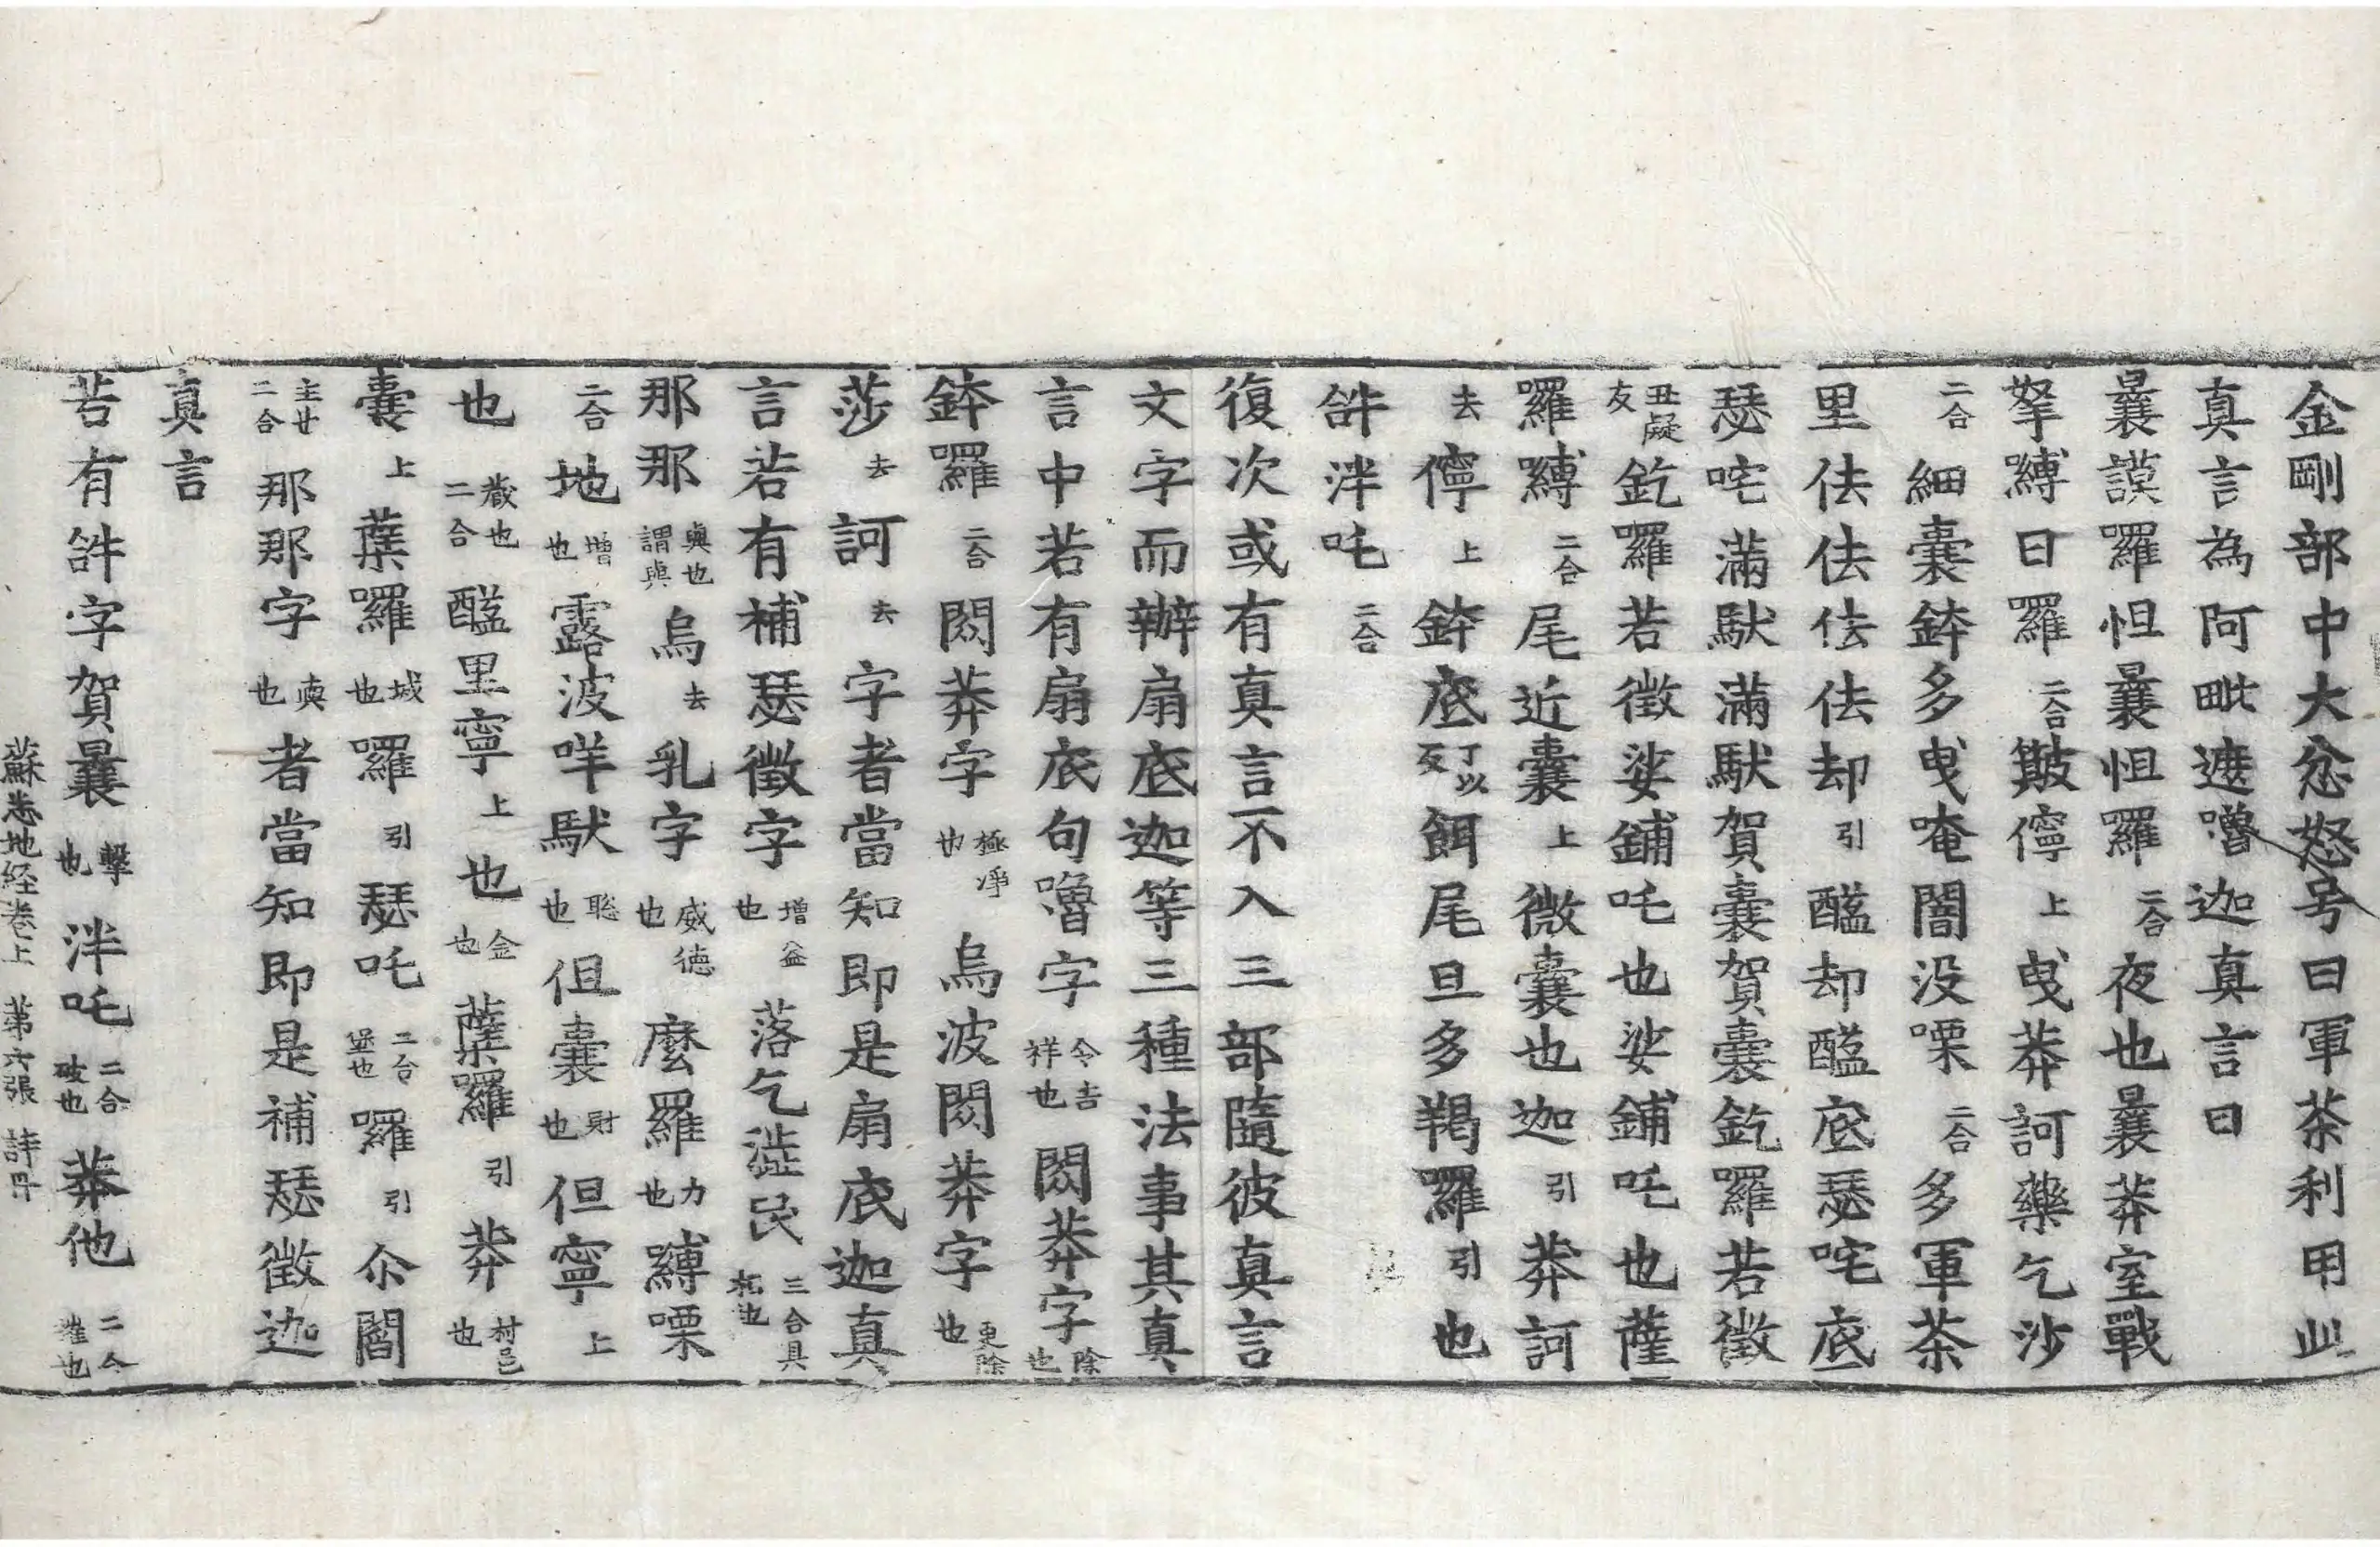 金剛部中大忿怒号曰軍茶利用此
真言為阿毗遮嚕迦真言曰
曩謨羅怛曩怛羅二合夜也曩莽室戰
拏嚩日羅二合皤儜上曳莽訶藥乞沙
二合細囊鉢多曳唵闇没㗚二合多軍茶
里佉佉佉佉却引醯却醯底瑟咤底
瑟咤滿馱滿馱賀囊賀囊釳羅若徵
丑凝反釳羅若徵娑鋪吒也娑鋪吒也薩
羅嚩二合尾近囊上微囊也迦引莽訶
去儜上鉢底丁以反餌尾旦多羯羅引也
𤙖泮吒二合
復次或有真言不入三部隨彼真言
文字而辦扇底迦等三種法事其真
言中若有扇底句嚕字令吉祥也閦莽字除也
鉢羅二合閦莽字極淨也烏波閦莽字更除也
莎去訶去字者當知即是扇底迦真
言若有補瑟徵字增益也落乞澁民三合具柘也
那那與也謂與烏去乳字威德也麼羅力也嚩㗚
二合地增也露波咩馱聡也但囊財也但寧上
也歲也二合醯里寧上也金也蘖羅引莽村邑也
囊上蘖羅城也羅引瑟吒二合堡也羅引尒閻
主廿二合那那字與也者當知即是補瑟徵迦
真言
若有𤙖字賀曩擊也泮吒二合破也莽他二合摧也
蘇悉地経卷上 第六張 詳丹